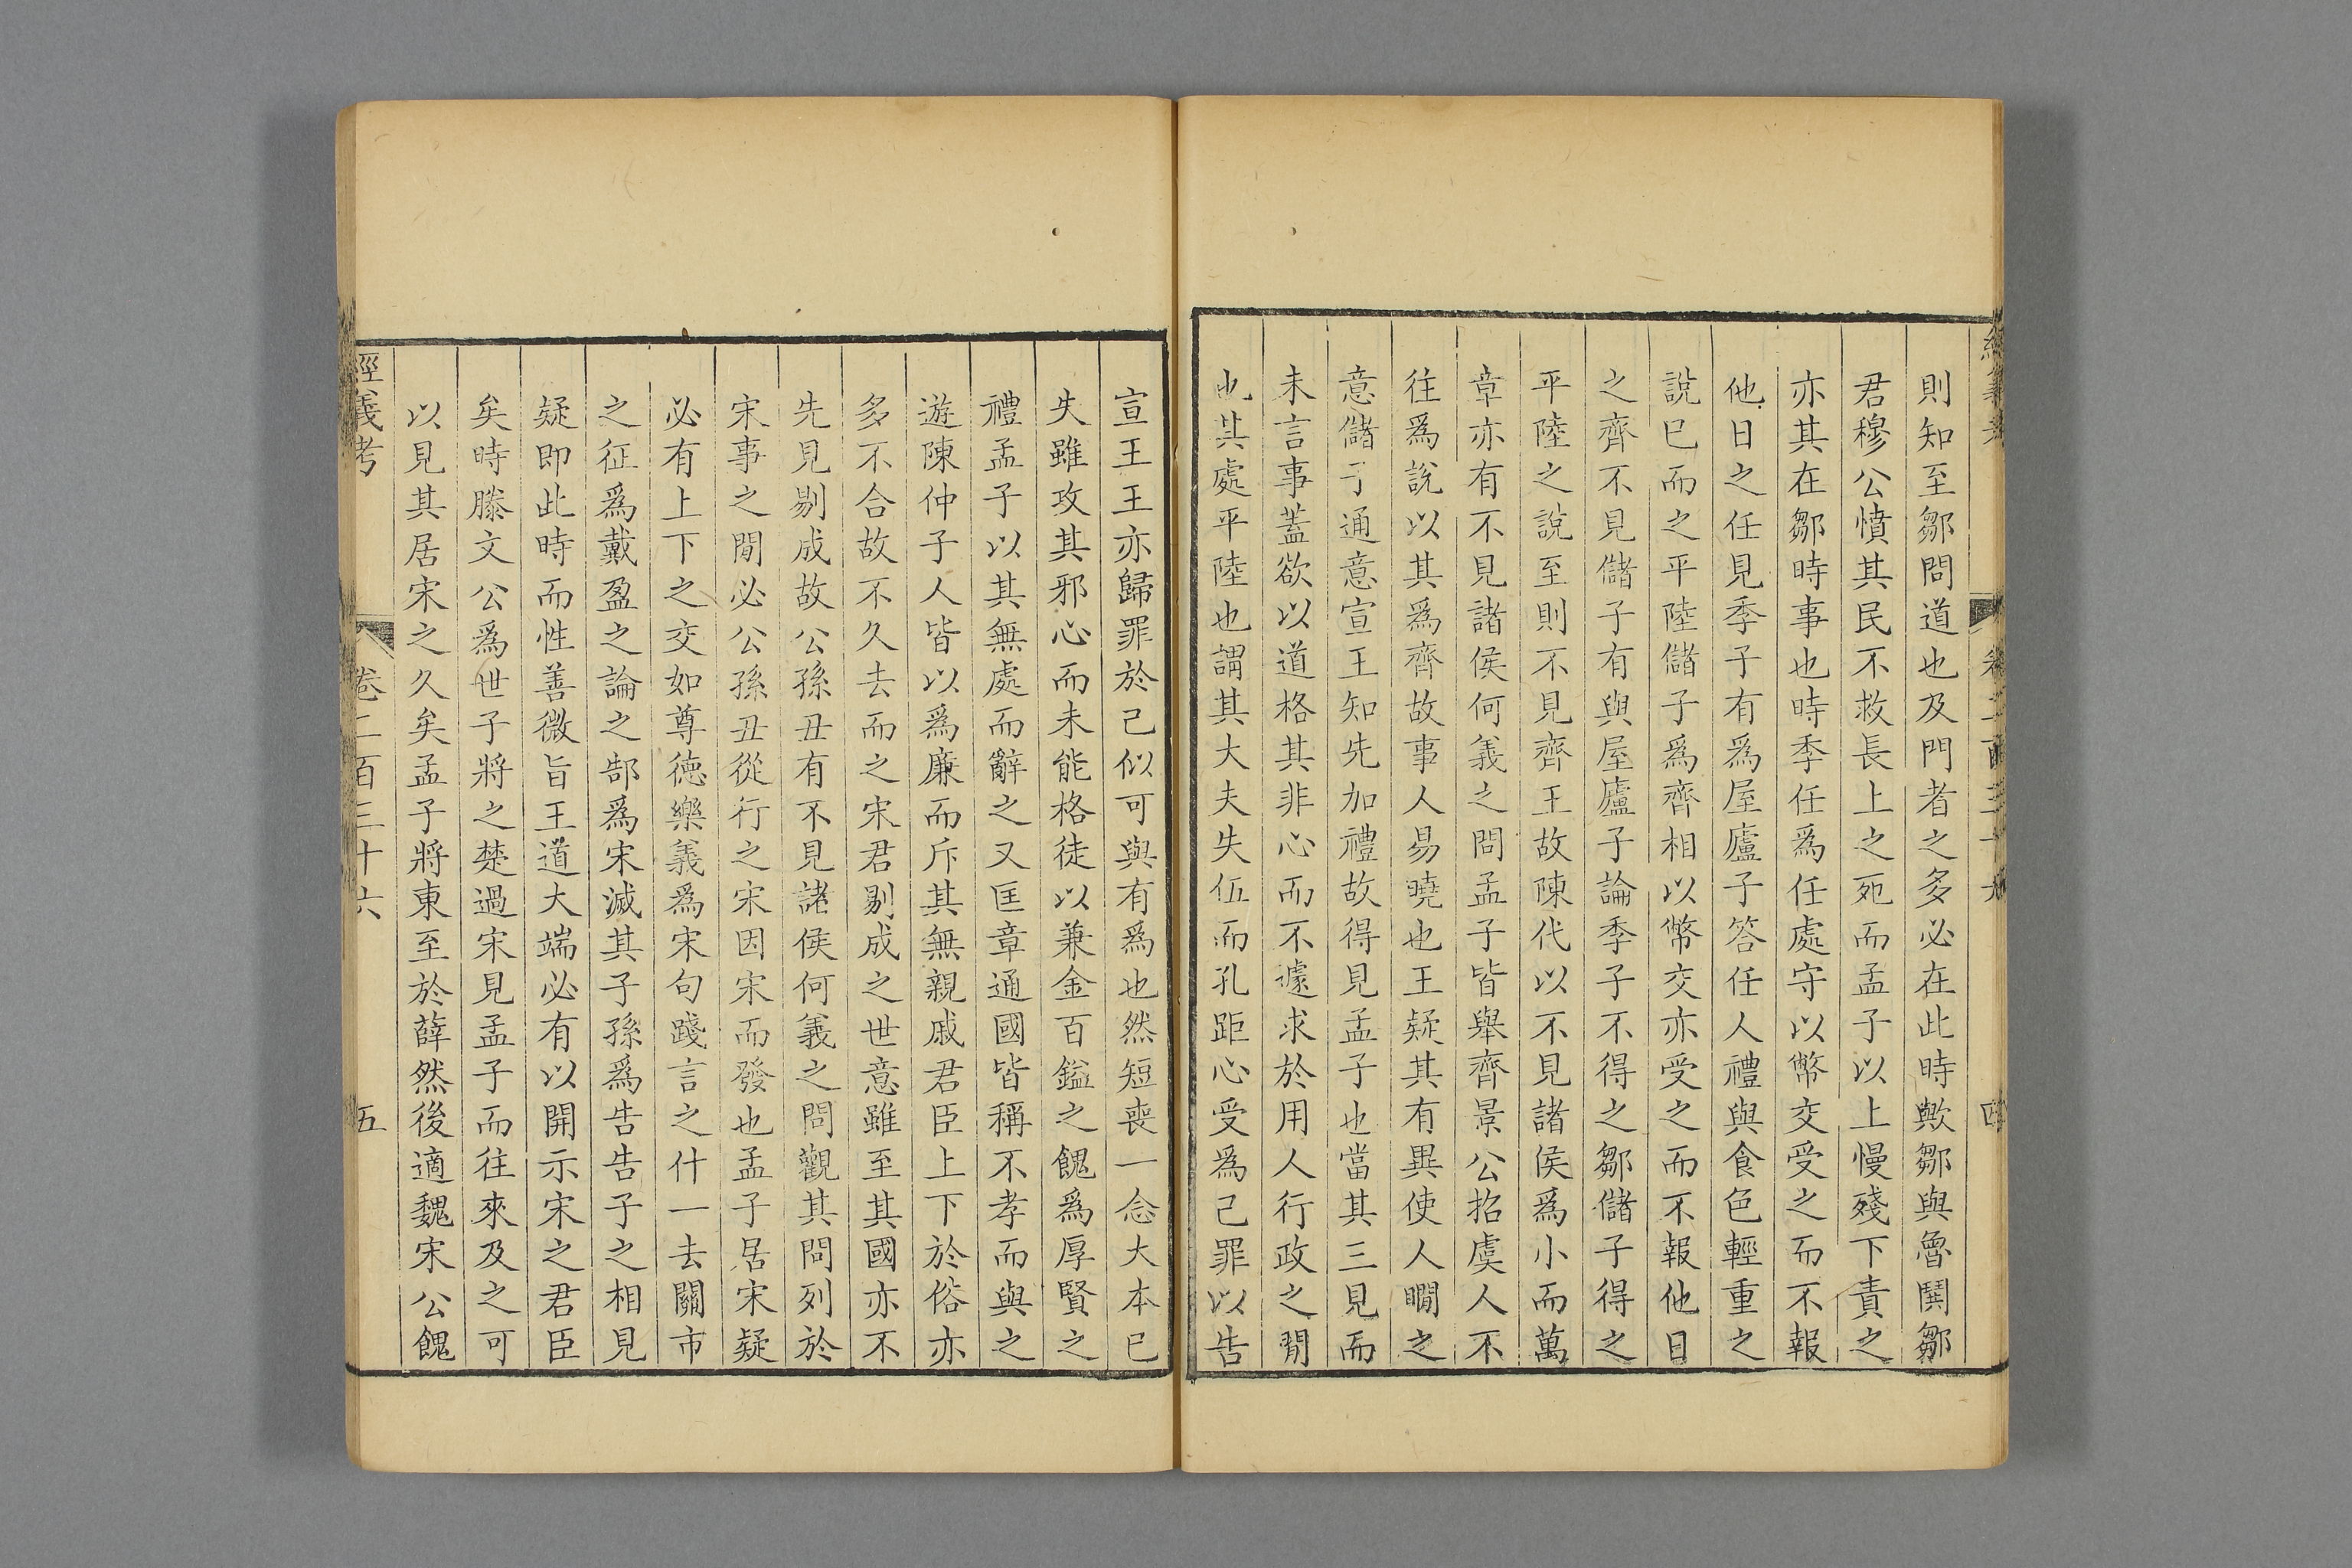 則知至鄒問道也及門者之多必在此時歟鄒與魯鬨鄒
君穆公憤其民不救長上之死而孟子以上慢殘下責之
亦其在鄒時事也時季任爲任處守以幣交受之而不報
他日之任見季子有爲屋廬子答任人禮與食色輕重之
說已而之平陸儲子爲齊相以幣交亦受之而不報他日
之齊不見儲子有與屋廬子論季子不得之鄒儲子得之
平陸之說至則不見齊王故陳代以不見諸侯爲小而萬
章亦有不見諸侯何義之問孟子皆舉齊景公招虞人不
往爲說以其爲齊故事人易曉也王疑其有異使人瞷之
意儲子通意宣王知先加禮故得見孟子也當其三見而
未言事蓋欲以道格其非心而不遽求於用人行政之閒
也其處平陸也謂其大夫失伍而孔距心受爲己罪以告
宣王王亦歸罪於己似可與有爲也然短喪一念大本已
失雖攻其邪心而未能格徒以兼金百鎰之餽爲厚賢之
禮孟子以其無處而辭之又匡章通國皆稱不孝而與之
遊陳仲子人皆以爲廉而斥其無親戚君臣上下於俗亦
多不合故不久去而之宋君剔成之世意雖至其國亦不
先見剔成故公孫丑有不見諸侯何義之問觀其問列於
宋事之閒必公孫丑從行之宋因宋而發也孟子居宋疑
必有上下之交如尊德樂義爲宋句踐言之什一去關市
之征爲戴盈之論之郜爲宋滅其子孫爲告告子之相見
疑即此時而性善微旨王道大端必有以開示宋之君臣
矣時滕文公爲世子將之楚過宋見孟子而往來及之可
以見其居宋之久矣孟子將東至於薛然後適魏宋公餽
經義考 卷二百三十六 五